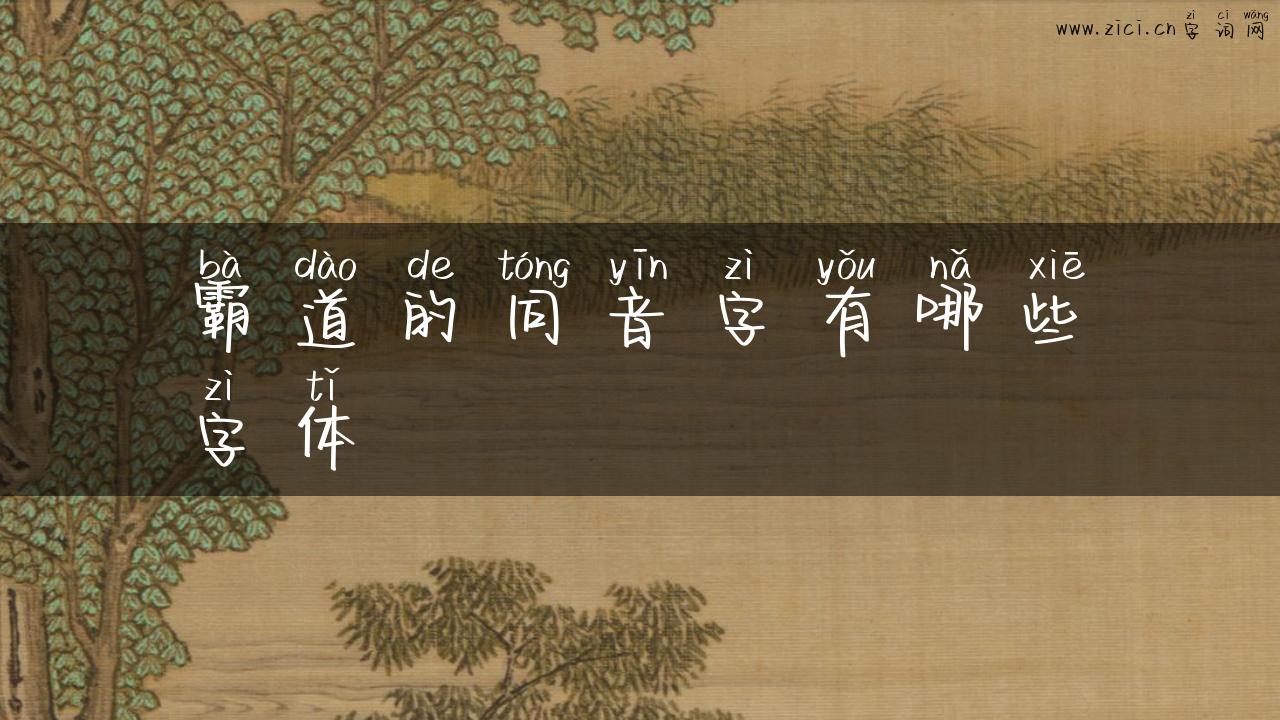 zì cí wǎng
www.zici.cn字词网
bà dào de tóng yīn zì yǒu nǎ xiē
霸道的同音字有哪些
zì tǐ
字体